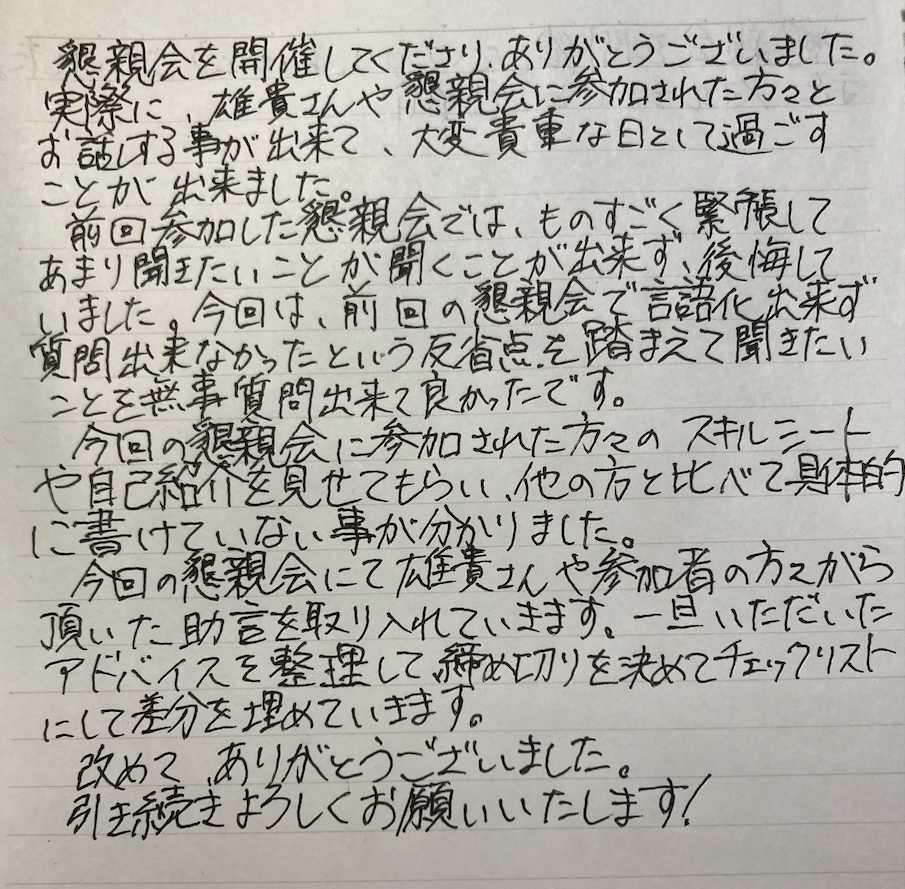 懇親会を開催してくださり、ありがとうございました。
実際に、雄貴さんや懇親会に参加された方々と
お話しする事が出来て、大変貴重な日として過ごす
ことが出来ました。
前回参加した懇親会では、ものすごく緊張して
あまり聞きたいことが聞くことが出来ず、後悔して
いました。今回は、前回の懇親会で言語化出来ず
質問出来なかったという反省点を踏まえて聞きたい
ことを無事質問出来て良かったです。
今回の懇親会に参加された方々のスキルシート
や自己紹介を見せてもらい、他の方と比べて具体的
に書けていない事が分かりました。
今回の懇親会にて雄貴さんや参加者の方々から
頂いた助言を取り入れていきます。一旦いただいた
アドバイスを整理して締め切りを決めてチェックリスト
にして差分を埋めていきます。
改めて、ありがとうございました。
引き続きよろしくお願いいたします!